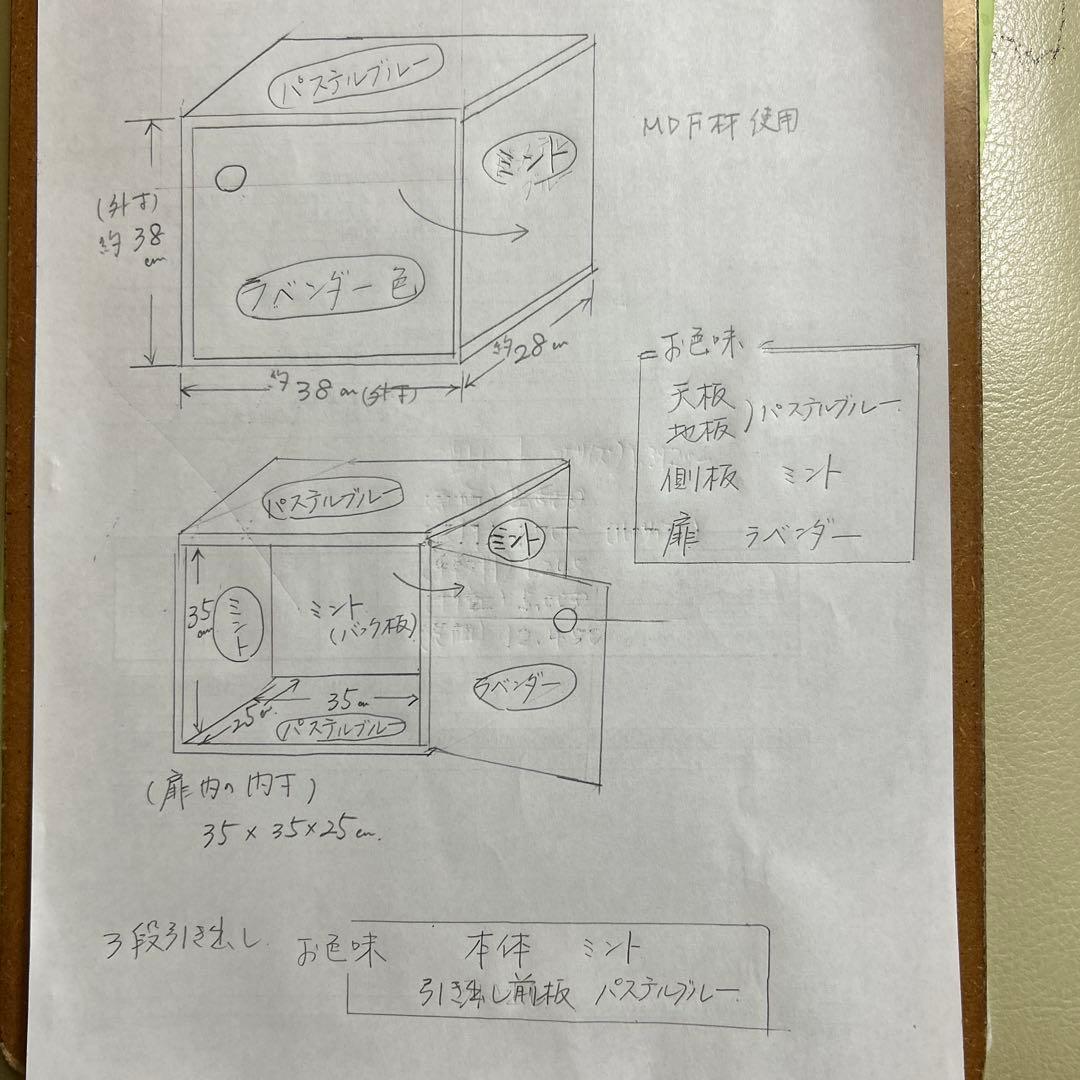 パステルブルー
MDF材使用
ミント
(外寸)
約38
cm
ラベンダー色
約28cm
約38cm(外寸)
お色味
天板
地板
)パステルブルー
側板 ミント
扉 ラベンダー
パステルブルー
ミント
35
cm
ミント
ミント
(バック板)
ラベンダー
25cm
35cm
パステルブルー
(扉内の内寸)
35×35×25cm.
3段引き出し
お色味 本体 ミント
引き出し前板 パステルブルー